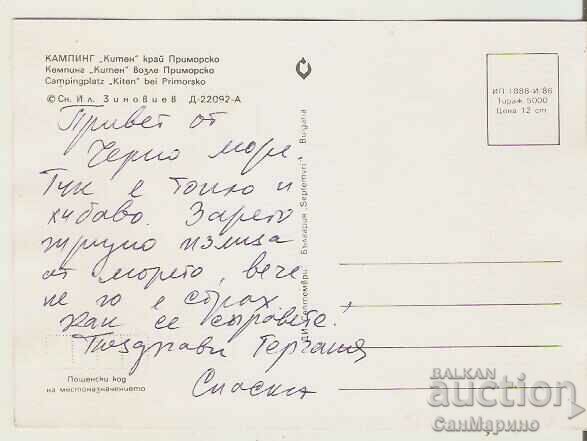 КАМПИНГ „Китен" край Приморско
Кемпинг „Китен" возле Приморско
Campingplatz „Kiten" bei Primorsko
© Сн. Ил. Зиновиев Д-22092-А
Привет от
Черно море
Тук е топло и
хубаво. Зарето
трудно излиза
от морето, вече
не го е страх.
Как се справяте?
Поздрави Гергана
Спаска
Пощенски код
на местоназначението
ДИ „Септември" България "Septemvri" Bulgaria
ИП 1088-И'86
Тираж 5000
Цена 12 ст
БАЛКАН
auction
СанМарино